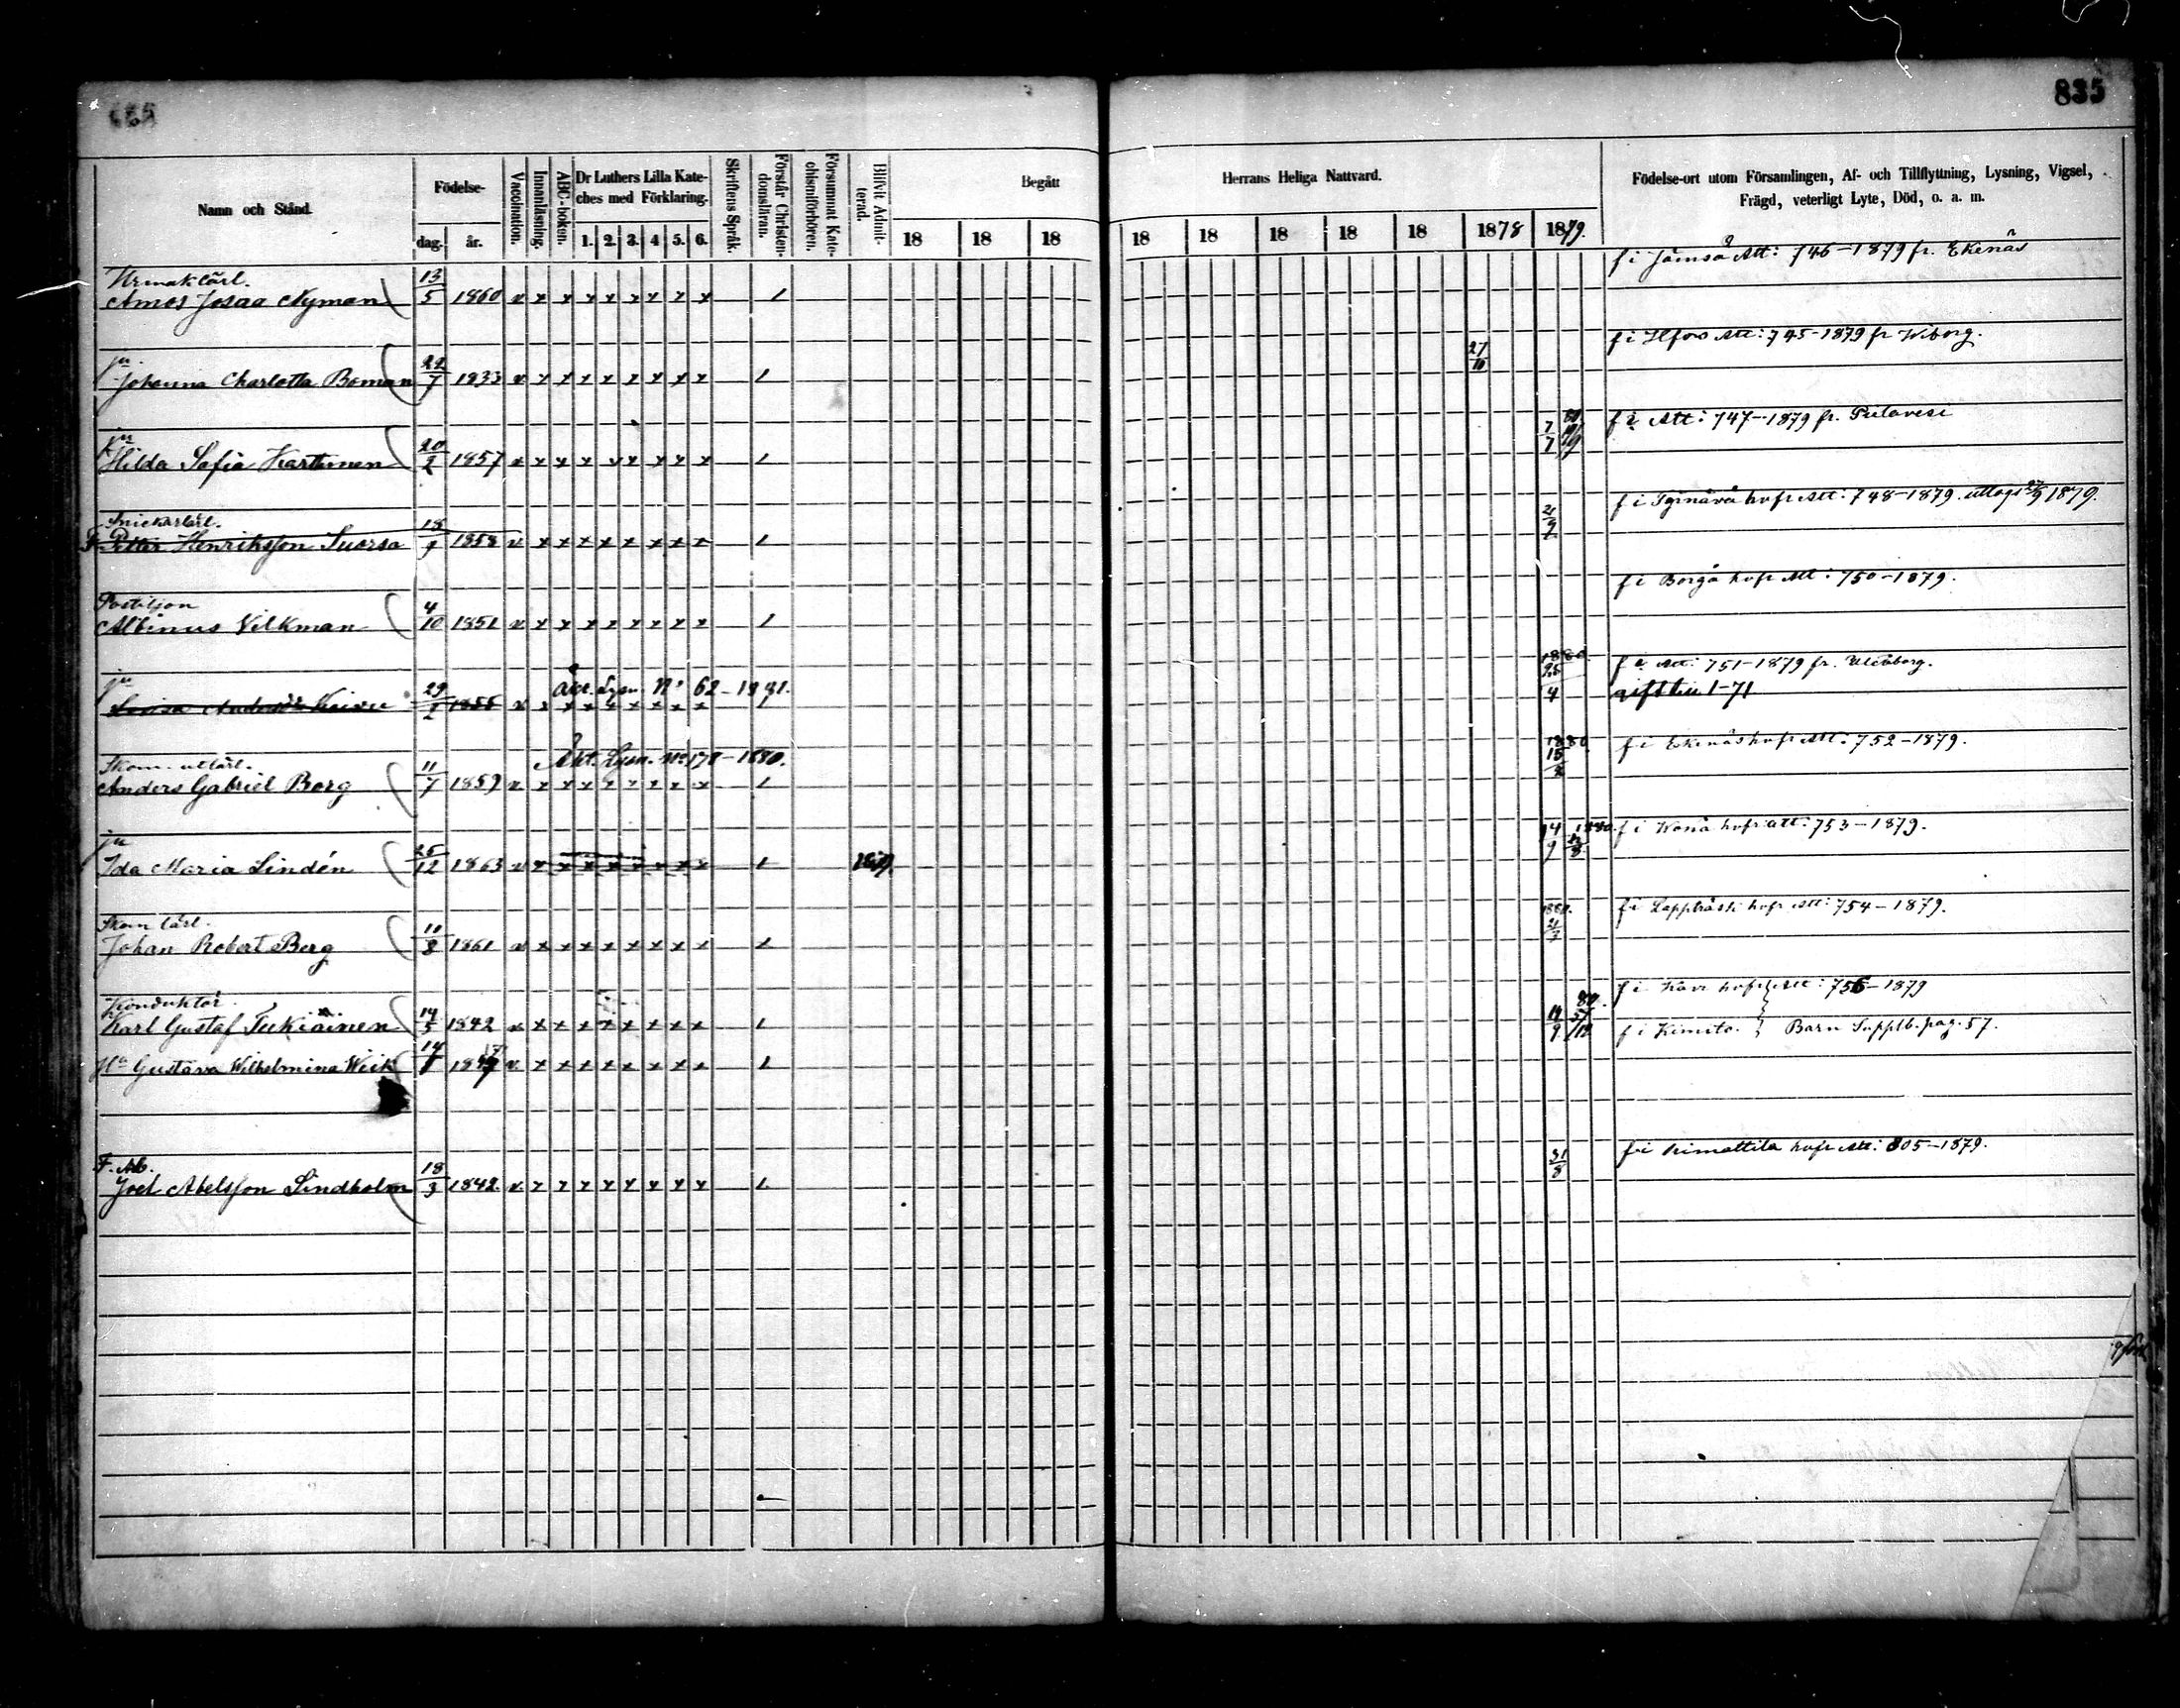 835
Namn och Stånd.
Födelse-
dag.
år.
Vaccination.
Innanläsning.
ABC-boken.
Dr Luthers Lilla Kate-
ches med Förklaring.
1. 2. 3. 4 5. 6.
Skriftens Språk.
Förstår Christen-
domsläran.
Försummat Kate-
chismiförhören.
Blifvit Admit-
terad.
Begått
18 18 18
Herrans Heliga Nattvard.
18 18 18 18 18 1878 1879.
Födelse-ort utom Församlingen, Af- och Tillflyttning, Lysning, Vigsel,
Frägd, veterligt Lyte, Död, o. a. m.
Urmaklärl.
Amos Josaa Nyman 13/5 1860 x x x x x x x x x / f i Jämså Att: 746-1879 fr. Ekenäs
ju.
Johanna Charlotta Boman 22/7 1833 x x x x x x x x x / 27/10 f i Hfors Att: 745-1879 fr Wiborg.
ju
Hilda Sofia Karthunen 20/2 1857 x x x x x x x x x / 7/7 f ? Att: 747-1879 fr. Pielavesi
Snickarlärl.
F. Petter Henriksson Suorsa 18/9 1858 x x x x x x x x x / hofr Att: 748-1879. uttogs 1879.
Postiljon
Albinus Vilkman 4/10 1851 x x x x x x x x x / f i Borgå hofr Att: 750-1879.
ju
Lovisa 29/2 1855 x x x x x x x x x Akt. Lysn. No 62-1881. 1880. 25/4 f ? Att: 751-1879 fr. Uleåborg.
gift till 1-71
Skom. utlärl.
Anders Gabriel Borg 11/7 1859 x x x x x x x x x / Akt. Lysn. No 178-1880. 1880. f i Ekenäs hofr Att: 752-1879.
ju
Ida Maria Lindén 25/12 1863 x x x x x x x x x / 1879. 14/9 1880. f i hofr att: 753-1879.
Skom lärl.
Johan Robert Berg 11/8 1861 x x x x x x x x x / 1880. f i Lappträsk hofr Att: 754-1879.
Konduktör
Karl Gustaf Tukiainen 14/5 1842 x x x x x x x x x / 14/9 80. f i hofr Att: 756-1879
Ha Gustava Wilhelmina Weik x x x x x x x x x / f i Kimito. Barn Supplb. pag. 57.
F. Ab.
Joel Abelsson Lindholm 18/3 1842 x x x x x x x x x / 31/8 f i Artimattila hofr Att: 805-1879.